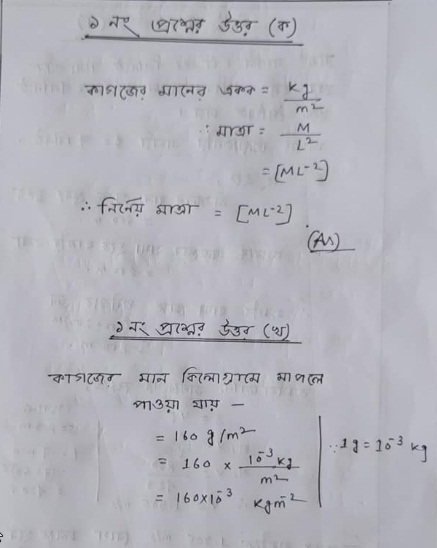 ১ নং প্রশ্নের উত্তর (ক)
কাগজের মানের একক = kg/m²
∴ মাত্রা = M/L²
= [ML⁻²]
∴ নির্ণেয় মাত্রা = [ML⁻²]
(An)
১ নং প্রশ্নের উত্তর (খ)
কাগজের মান কিলোগ্রামে মাপলে
পাওয়া যায় —
= 160 g/m²
= 160 × 10⁻³ kg/m²
= 160×10⁻³ kgm⁻²
∵ 1g = 10⁻³ kg